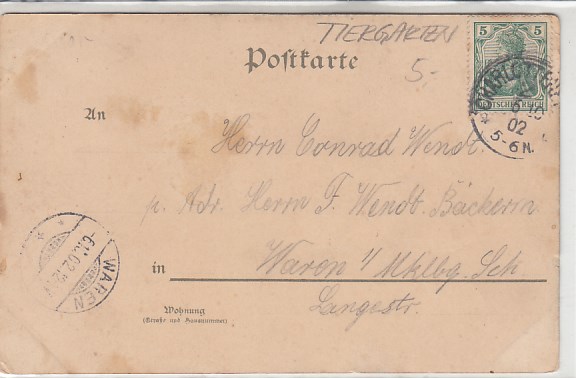 TIERGARTEN
Postkarte
5.-
5 5
DEUTSCHES REICH
CHARLOTTENB
02
5-6N.
An
Herrn Conrad Wendt.
p. Adr. Herrn F. Wendt. Bäckerm.
in Waren i/ Mklbg. Sch
Langestr.
Wohnung
(Straße und Hausnummer)
WAREN
02